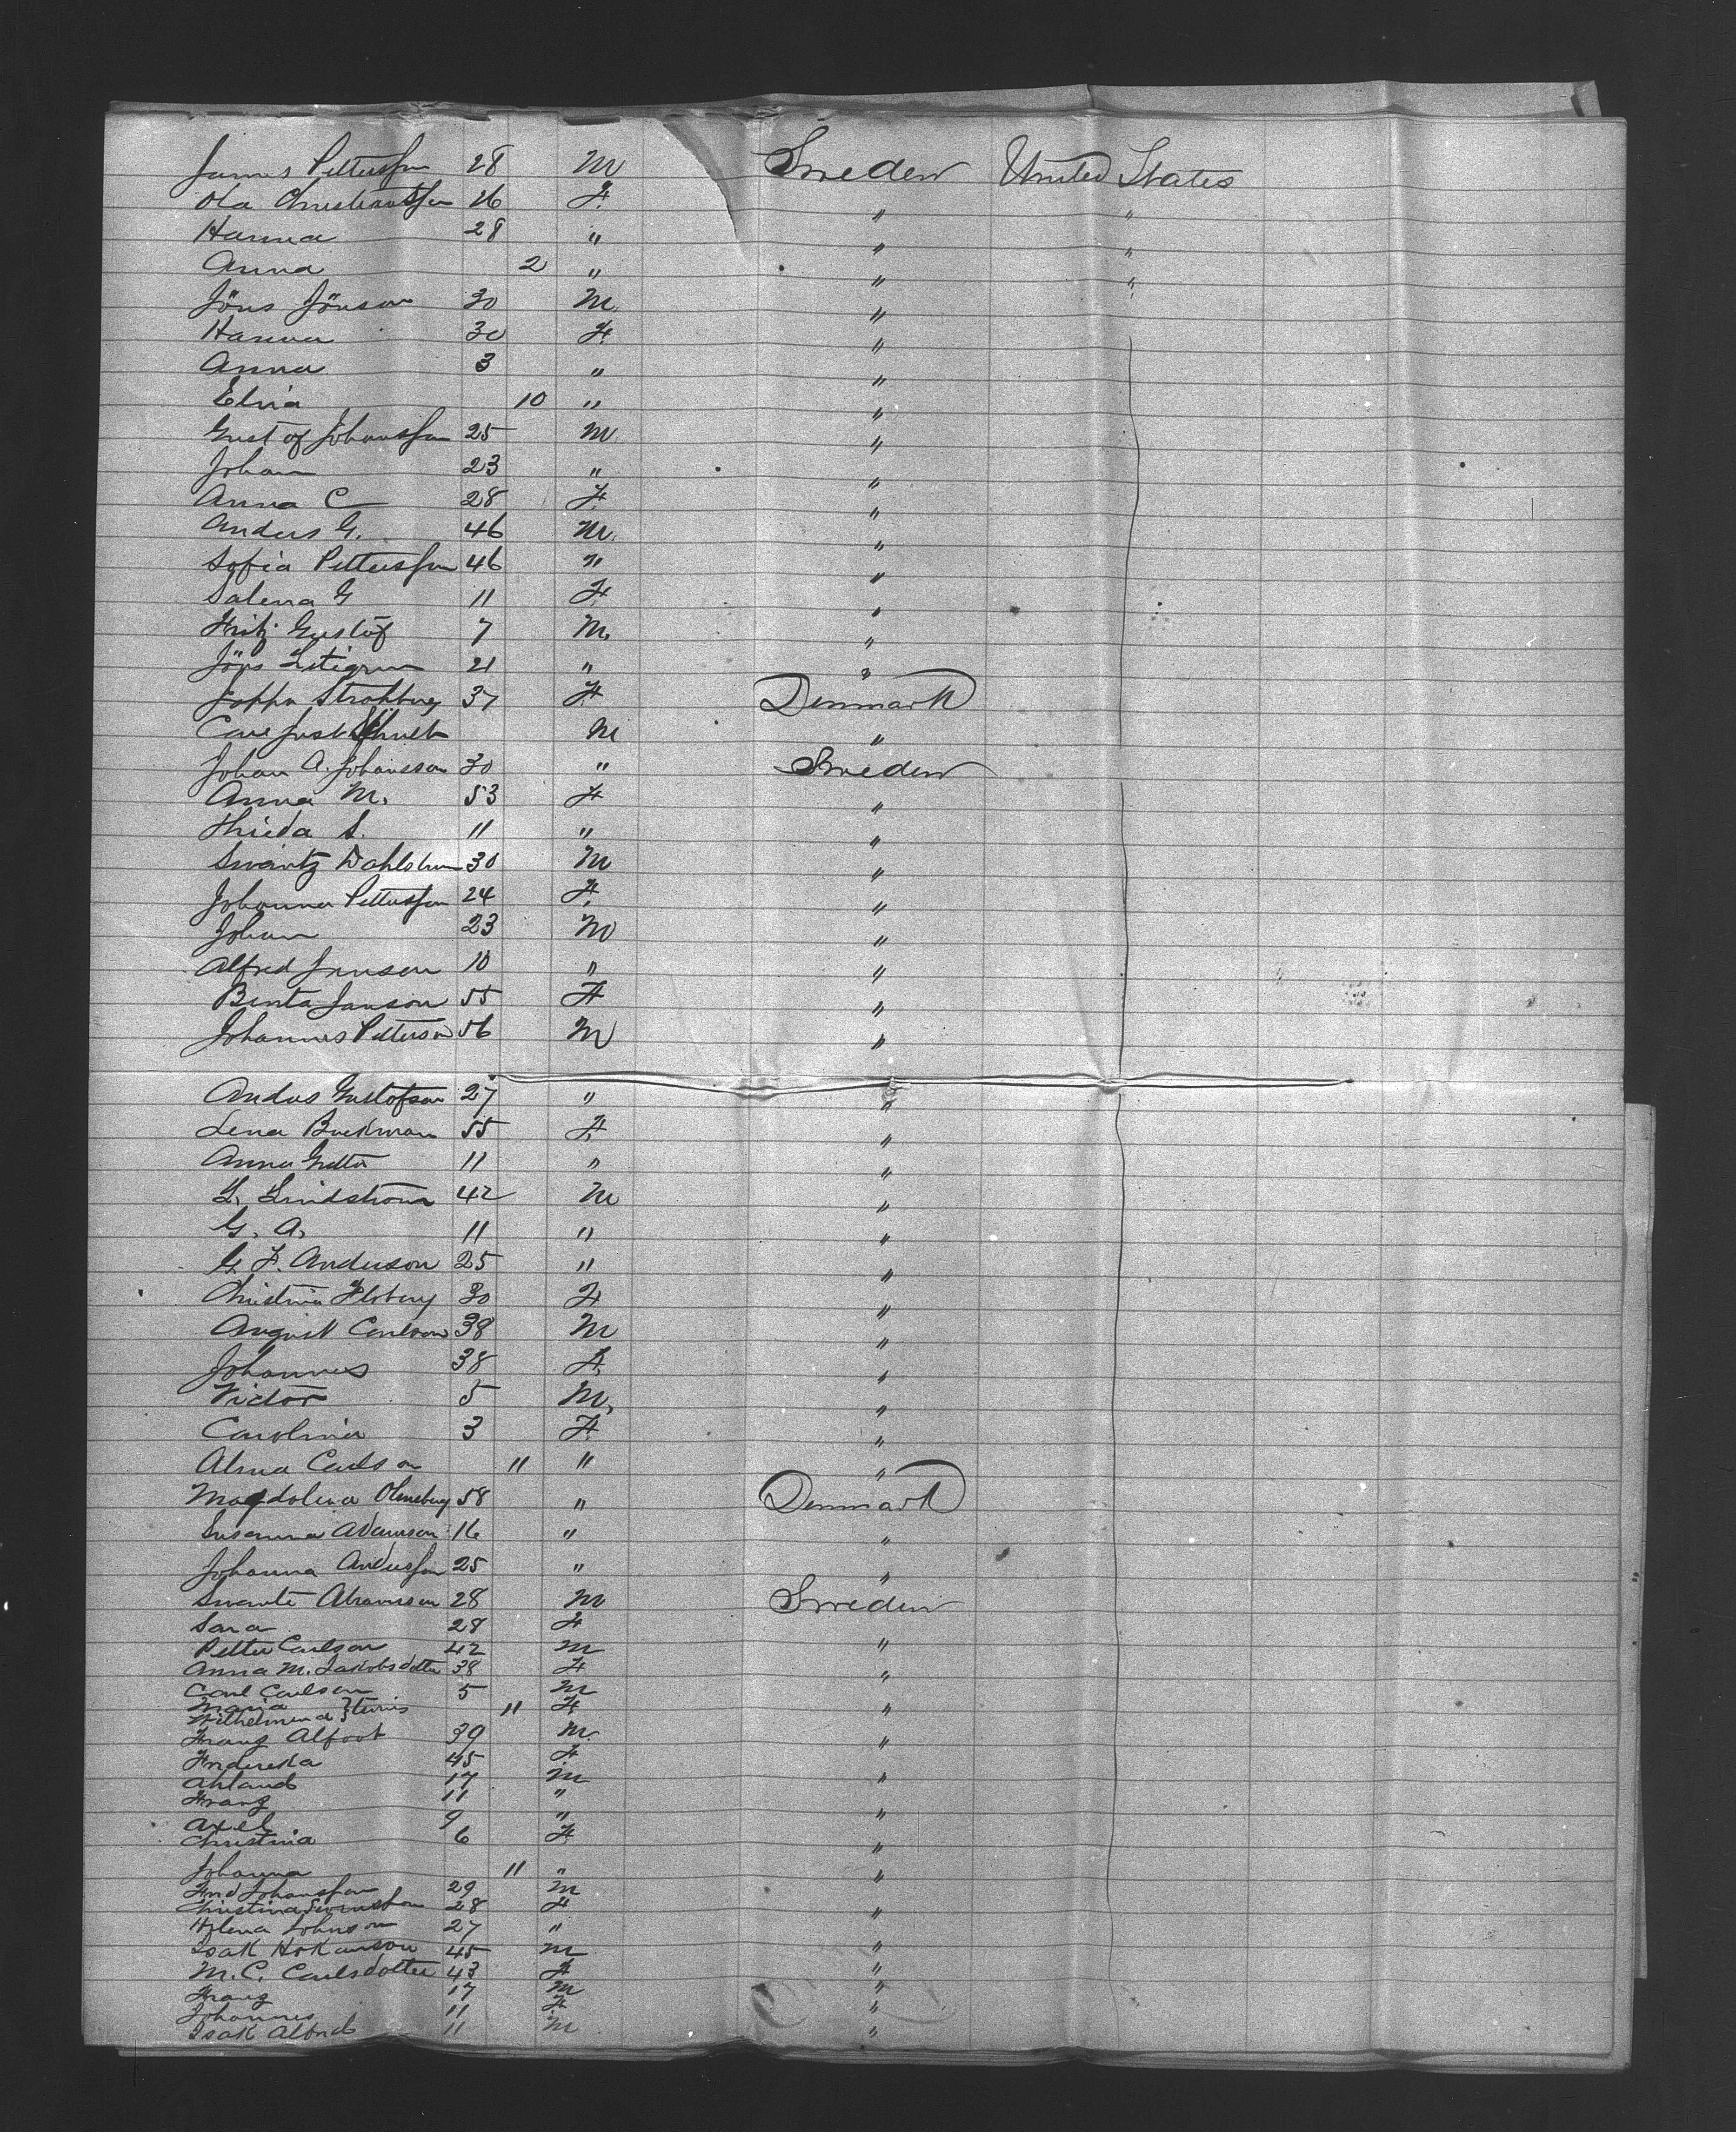 James Pettersson 28 M Sweden United States
Ola Christiansson 26 F. " "
Hanna 28 " " "
Anna 2 " " "
Jöns Jönson 30 M. "
Hanna 30 F. "
Anna 3 " "
Elna 10 " "
Gustof Johansson 25 M. "
Johan 23 " "
Anna C 28 F. "
Anders G. 46 M. "
Sofia Pettersson 46 " "
Salena G 11 F. "
Fritz Gustof 7 M. "
Jöns 21 " "
Strohberg 37 F. Denmark
Just M "
Johan A. Johansson 30 " Sweden
Anna M. 53 F "
S. 11 " "
Dahlstrom 30 M "
Johanna Pettersson 24 F. "
Johan 23 M "
Alfred Janson 10 " "
Benta Janson 55 F "
Johannes Petterson 56 M "
Andus Gustofson 27 " "
Lena Buckman 55 F. "
Anna Getta 11 " "
L. Lindstrom 42 M "
G. A. 11 " "
G. F. Anderson 25 " "
Christina 30 F "
August Carlson 38 M "
Johannes 38 F. "
Victor 5 M. "
Carolina 3 F. "
Alma Carlson 11 " "
Magdolena 58 " Denmark
Susanna Adamson 16 " "
Johanna Andersson 25 " "
Swante Abramson 28 M Sweden
Sara 28 F
Petter Carlson 42 M "
Anna M. Jakobsdotter 38 F
Carl Carlson 5 M "
Maria
Wilhelmina } 11 F "
Franz 39 M. "
Frederika 45 F.
17 M "
Franz 11 "
Axel 9 " "
Christina 6 F "
Johanna 11 " "
Fred Johansson 29 M
Christina 28 F "
Helena Johnson 27 "
Isak Hokanson 45 M "
M. C. Carlsdotter 43 F "
Franz 17 M "
Johannes 11 F "
Isak Alfred 11 M "